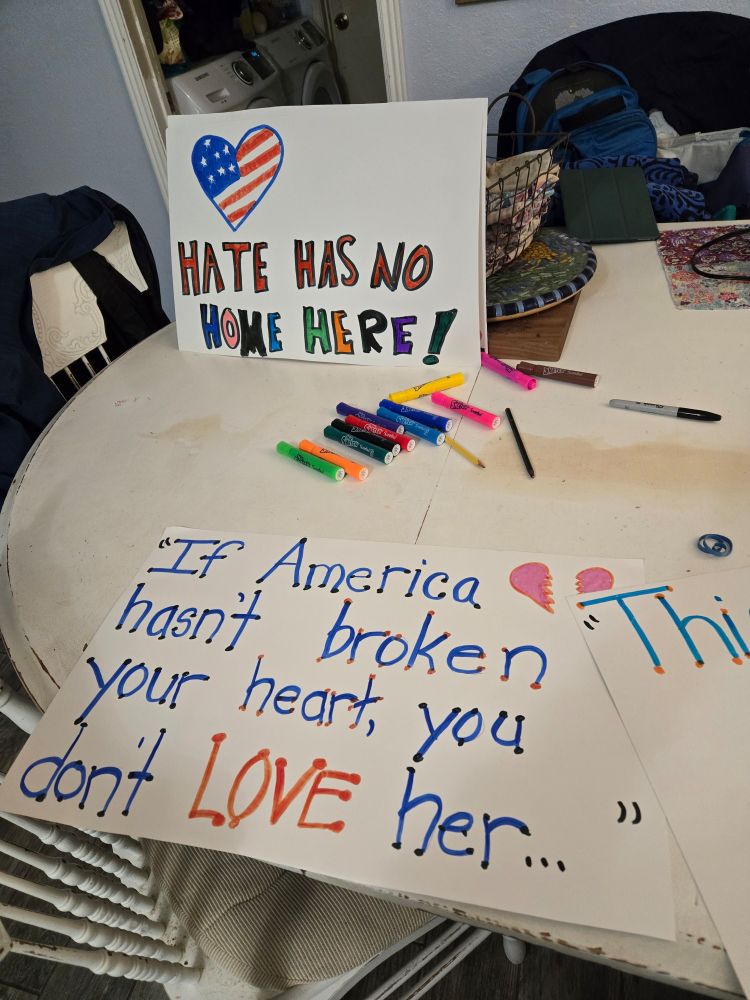 HATE HAS NO
HOME HERE!
"If America
hasn't broken
your heart, you
don't LOVE her..."
"Thi